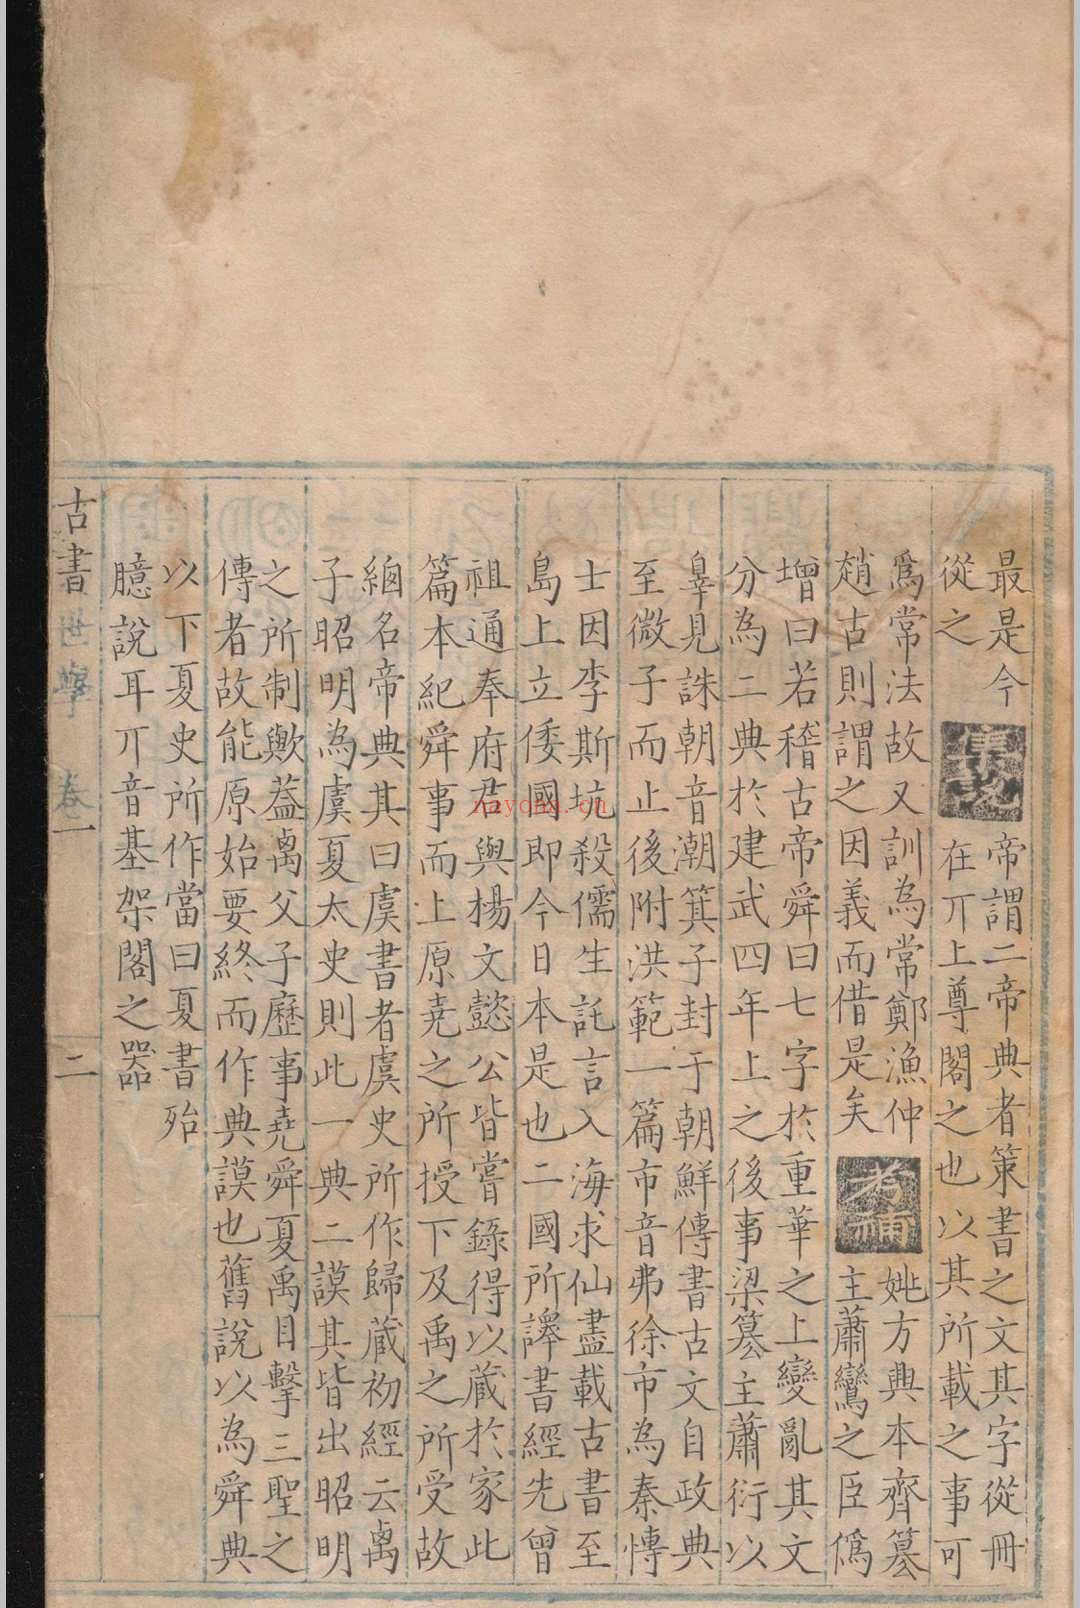 最是今
從之
帝謂二帝典者策書之文其字從冊
在丌上尊閣之也以其所載之事可
爲常法故又訓為常鄭漁仲
趙古則謂之因義而借是矣
考補
姚方典本齊簒
主蕭鸞之臣僞
增曰若稽古帝舜曰七字於重華之上變亂其文
分為二典於建武四年上之後事梁簒主蕭衍以
辠見誅朝音潮箕子封于朝鮮傳書古文自政典
至微子而止後附洪範一篇市音弗徐市為秦慱
士因李斯坑殺儒生託言入海求仙盡載古書至
島上立倭國即今日本是也二國所譯書經先曾
祖通奉府君與楊文懿公皆嘗錄得以藏於家此
篇本紀舜事而上原堯之所授下及禹之所受故
緫名帝典其曰虞書者虞史所作歸蔵初經云禹
子昭明為虞夏太史則此一典二謨其皆出昭明
之所制歟葢禹父子歷事堯舜夏禹目擊三聖之
傳者故能原始要終而作典謨也舊說以為舜典
以下夏史所作當曰夏書殆
臆說耳丌音基架閣之器
古書世學 卷一 二
nayona.cn